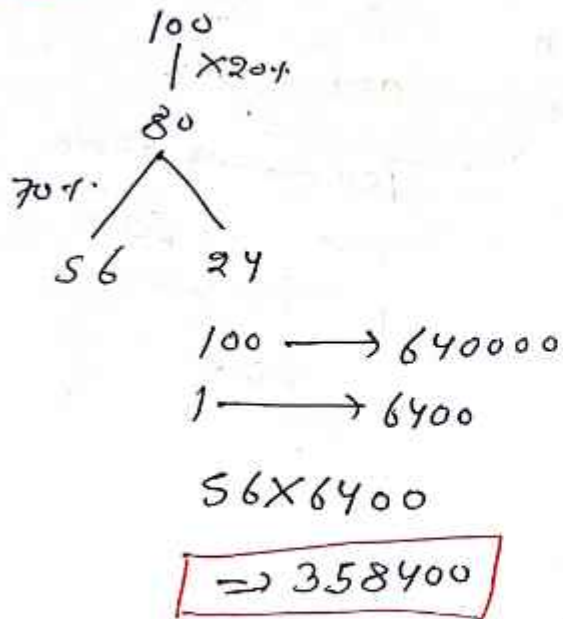 100
×20%
80
70%
56 24
100 → 640000
1 → 6400
56×6400
⇒ 358400